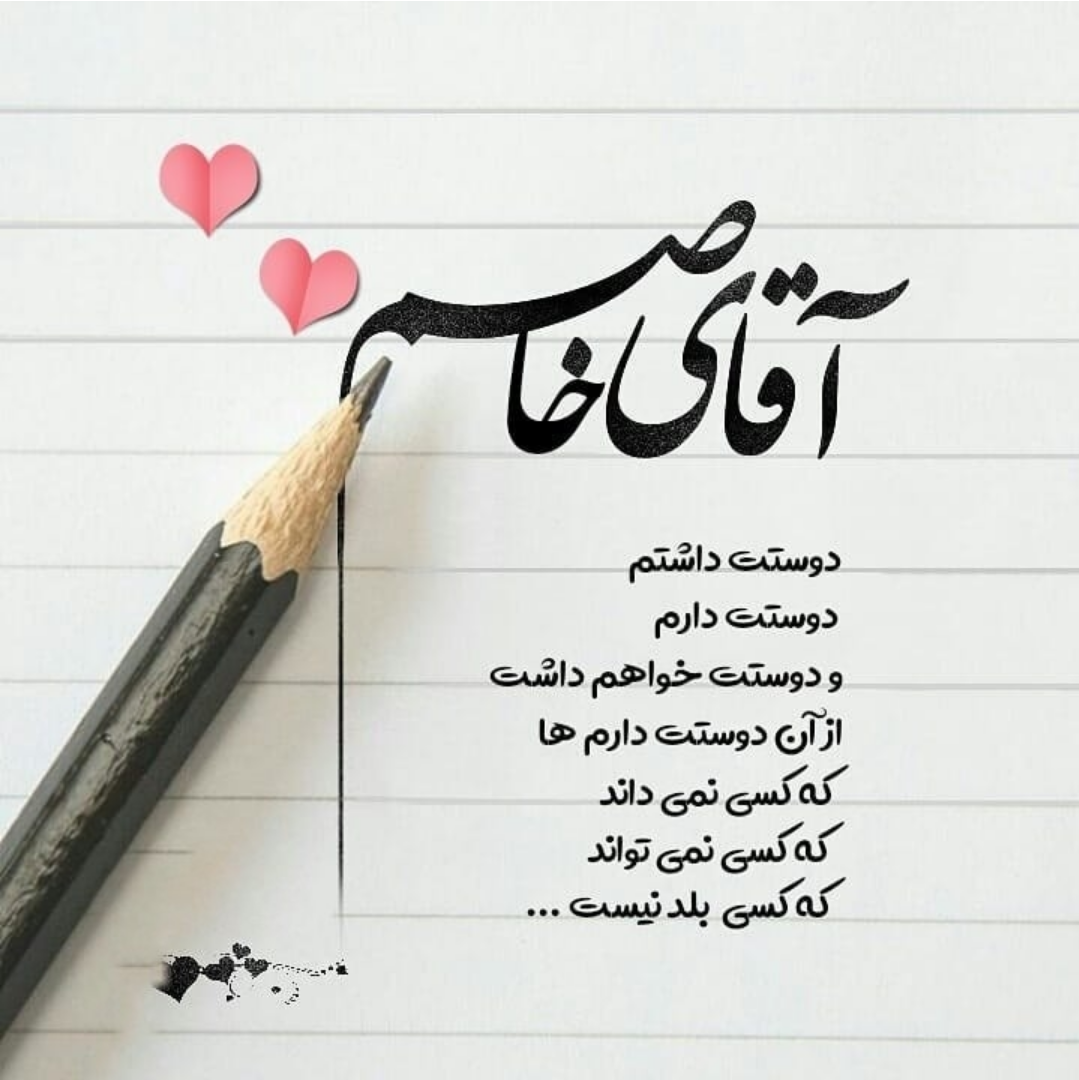 آقای خاصم
دوستت داشتم
دوستت دارم
و دوستت خواهم داشت
از آن دوستت دارم ها
که کسی نمی داند
که کسی نمی تواند
که کسی بلد نیست ...